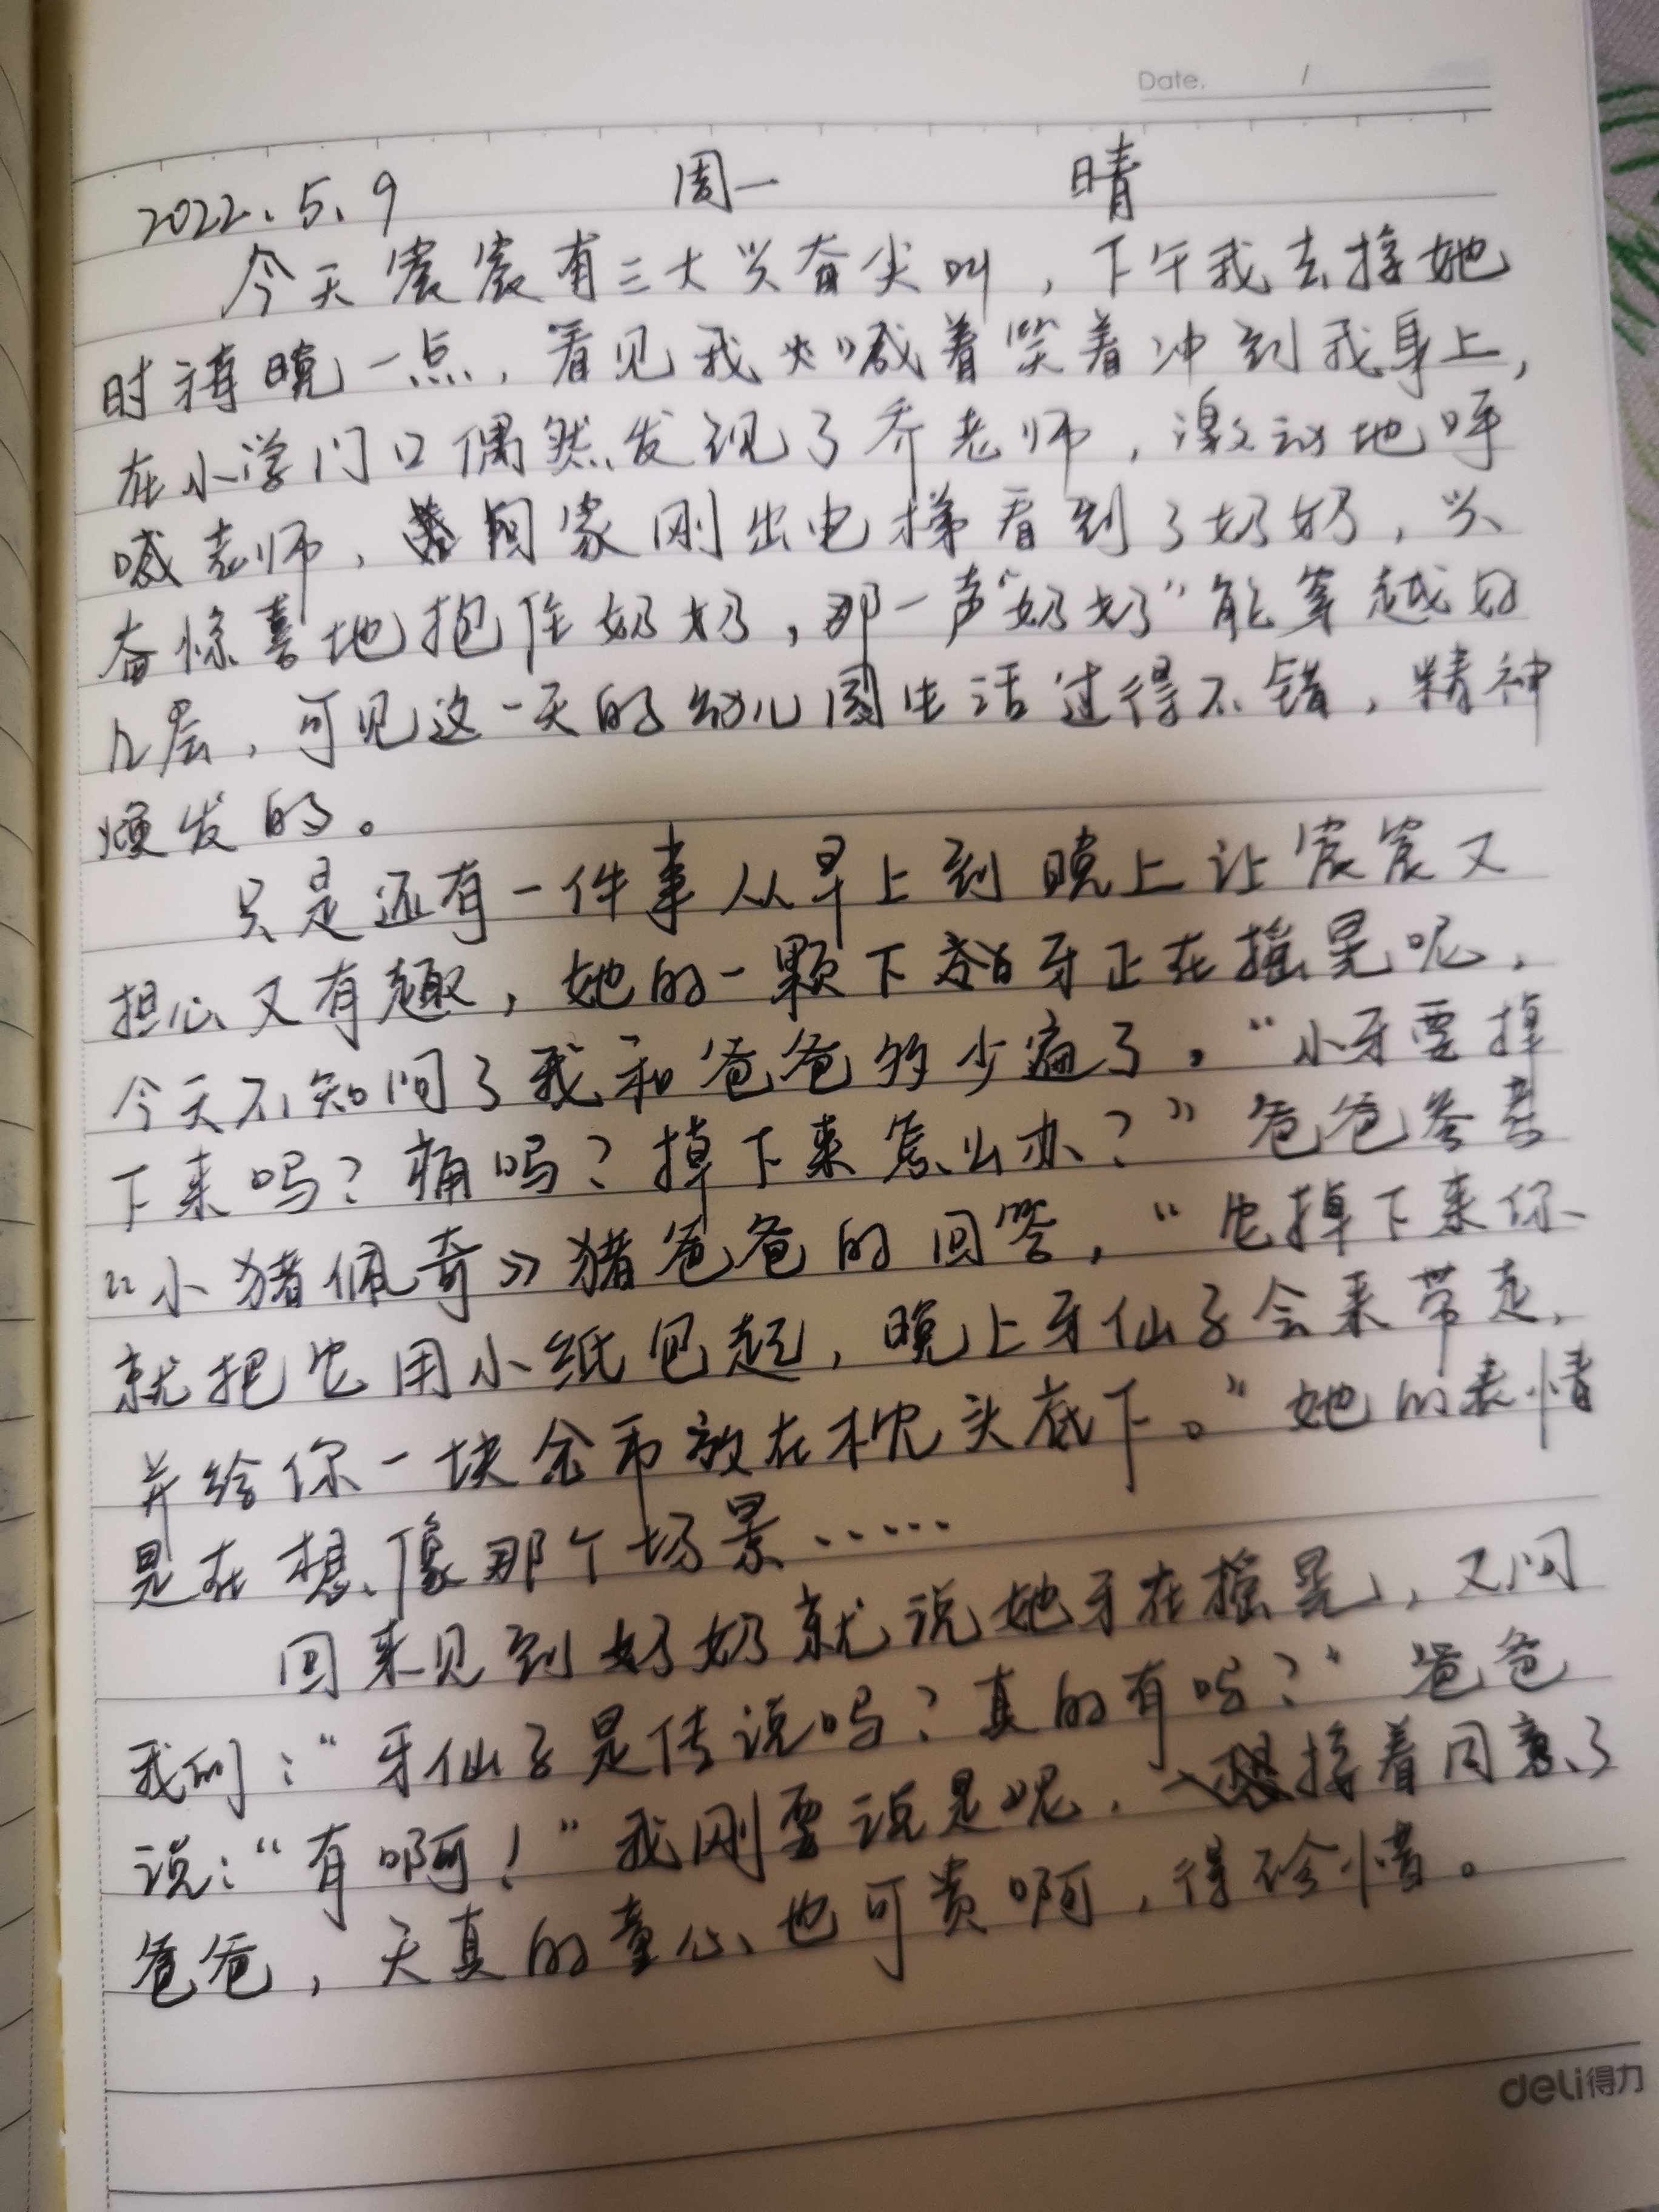 Date. /
2022.5.9 周一 晴
今天宸宸有三大兴奋尖叫，下午我去接她
时稍晚一点，看见我火喊着笑着冲到我身上，
在小学门口偶然发现了乔老师，激动地呼
喊老师，回家刚出电梯看到了奶奶，兴
奋惊喜地抱住奶奶，那一声“奶奶”能穿越好
几层，可见这一天的幼儿园生活过得不错，精神
焕发的。
只是还有一件事从早上到晚上让宸宸又
担心又有趣，她的一颗下牙正在摇晃呢，
今天不知问了我和爸爸多少遍了。“小牙要掉
下来吗？痛吗？掉下来怎么办？”爸爸参考
《小猪佩奇》猪爸爸的回答，“它掉下来你
就把它用小纸包起，晚上牙仙子会来带走，
并给你一块金币放在枕头底下。”她的表情
是在想像那个场景……
回来见到奶奶就说她牙在摇晃，又问
我们：“牙仙子是传说吗？真的有吗？”爸爸
说：“有啊！”我刚要说是呢，接着同意了
爸爸，天真的童心也可贵啊，得珍惜。
deli得力